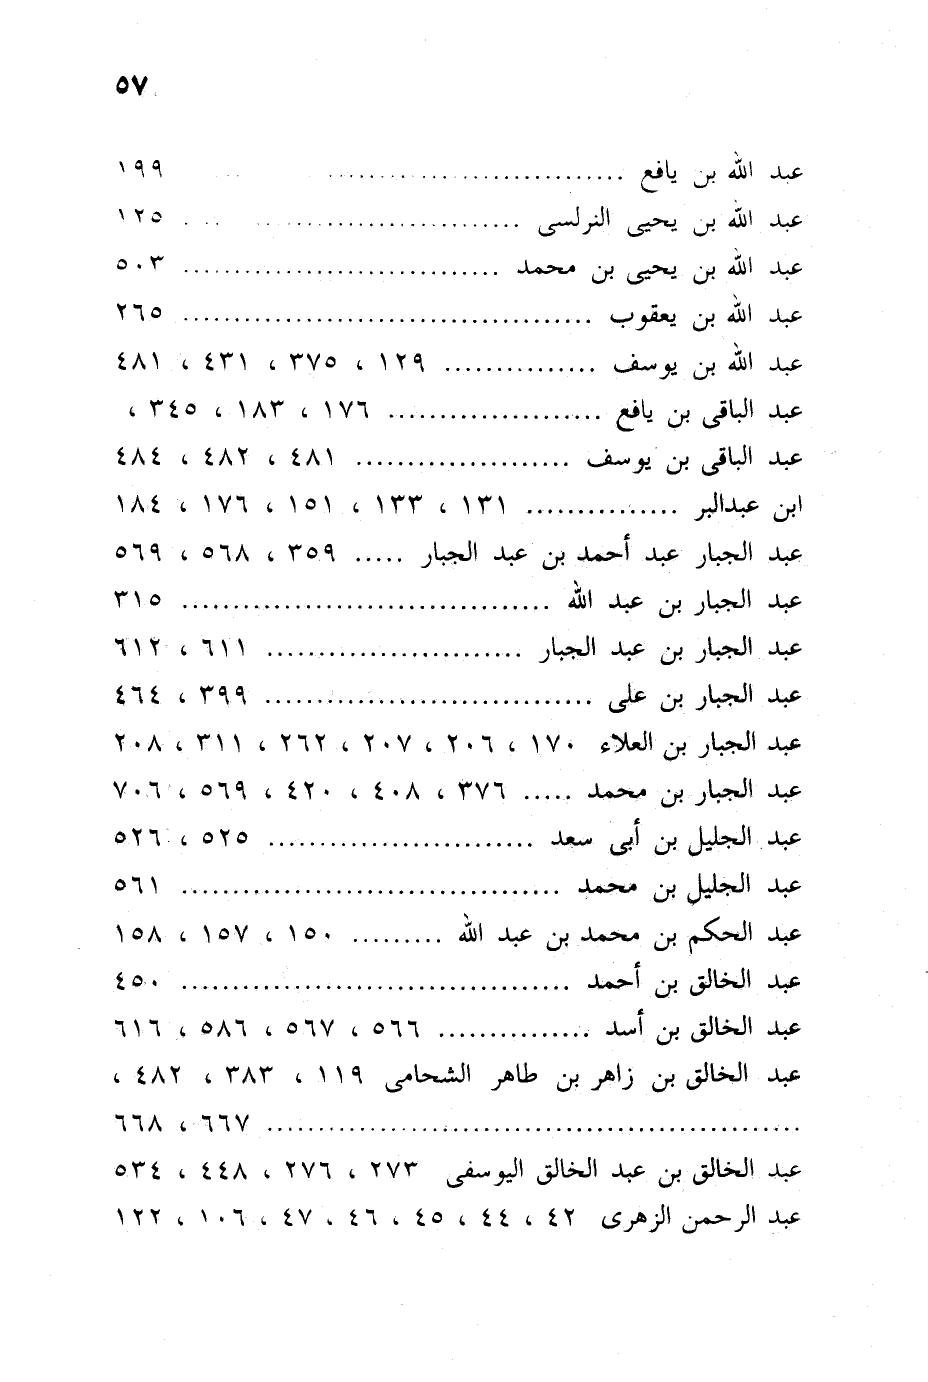 ٥٧
عبد الله بن يافع ............................ ١٩٩
عبد الله بن يحيى النرلسى ............................ ١٢٥
عبد الله بن يحيى بن محمد ............................ ٥٠٣
عبد الله بن يعقوب ............................ ٢٦٥
عبد الله بن يوسف ............... ١٢٩ ، ٣٧٥ ، ٤٣١ ، ٤٨١
عبد الباقى بن يافع ..................... ١٧٦ ، ١٨٣ ، ٣٤٥ ،
عبد الباقى بن يوسف ..................... ٤٨١ ، ٤٨٢ ، ٤٨٤
ابن عبدالبر ............... ١٣١ ، ١٣٣ ، ١٥١ ، ١٧٦ ، ١٨٤
عبد الجبار عبد أحمد بن عبد الجبار ..... ٣٥٩ ، ٥٦٨ ، ٥٦٩
عبد الجبار بن عبد الله .................................... ٣١٥
عبد الجبار بن عبد الجبار ......................... ٦١١ ، ٦١٢
عبد الجبار بن على ................................ ٣٩٩ ، ٤٦٤
عبد الجبار بن العلاء ١٧٠ ، ٢٠٦ ، ٢٠٧ ، ٢٦٢ ، ٣١١ ، ٢٠٨
عبد الجبار بن محمد ..... ٣٧٦ ، ٤٠٨ ، ٤٢٠ ، ٥٦٩ ، ٧٠٦
عبد الجليل بن أبى سعد .......................... ٥٢٥ ، ٥٢٦
عبد الجليل بن محمد ..................................... ٥٦١
عبد الحكم بن محمد بن عبد الله ......... ١٥٠ ، ١٥٧ ، ١٥٨
عبد الخالق بن أحمد ...................................... ٤٥٠
عبد الخالق بن أسد ............... ٥٦٦ ، ٥٦٧ ، ٥٨٦ ، ٦١٦
عبد الخالق بن زاهر بن طاهر الشحامى ١١٩ ، ٣٨٣ ، ٤٨٢ ،
.................................................... ٦٦٧ ، ٦٦٨
عبد الخالق بن عبد الخالق اليوسفى ٢٧٣ ، ٢٧٦ ، ٤٤٨ ، ٥٣٤
عبد الرحمن الزهرى ٤٢ ، ٤٤ ، ٤٥ ، ٤٦ ، ٤٧ ، ١٠٦ ، ١٢٢